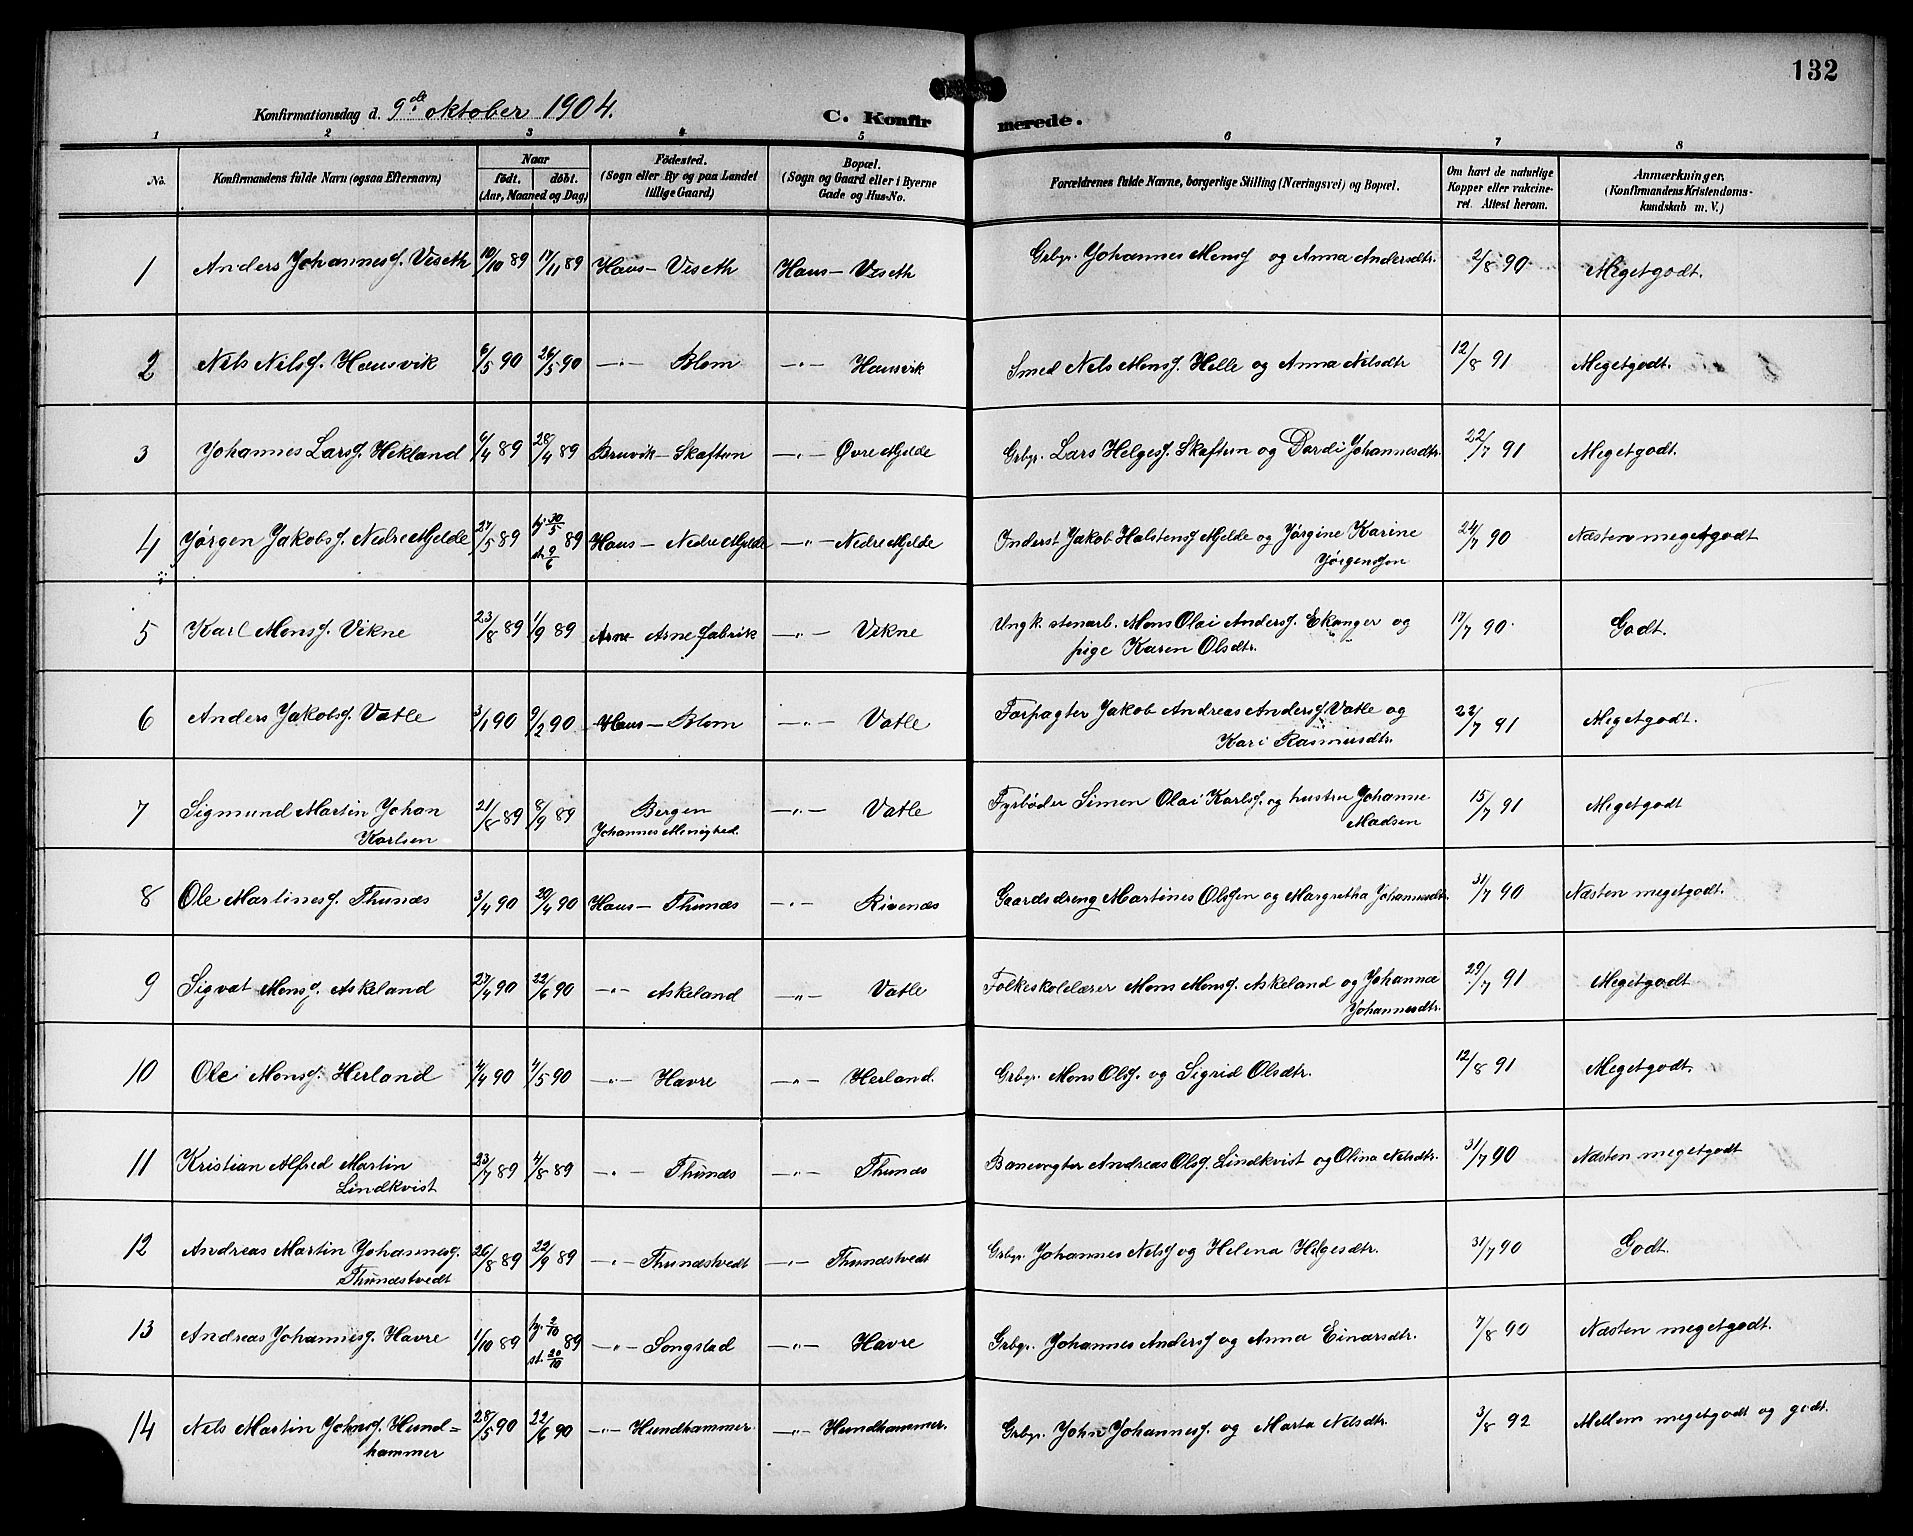 132
Konfirmationsdag d. 9de oktober 1904. C. Konfirmerede.
1 2 3 4 5 6 7 8
No. Konfirmandens fulde Navn (ogsaa Efternavn) Naar født. døbt. (Aar, Maaned og Dag) Fødested. (Sogn eller By og paa Landet tillige Gaard) Bopæl. (Sogn og Gaard eller i Byerne Gade og Hus-No. Forældrenes fulde Navne, borgerlige Stilling (Næringsvei) og Bopæl. Om havt de naturlige Kopper eller vakcineret. Attest herom. Anmærkninger. (Konfirmandens Kristendomskundskab m. V.)
1 Anders Johanness. Viseth 10/10 89 17/11 89 Haus - Viseth Haus - Viseth Grbr. Johannes Monss. og Anna Andersdtr. 2/8 90 Megetgodt.
2 Nils Nilss. Hausvik 6/5 90 26/5 90 -"- Blom -"- Hausvik Smed Nels Monss. Helle og Anna Nelsdtr 12/8 91 Megetgodt.
3 Johannes Larss. Hekland 6/4 89 28/4 89 Bruvik - Skaftun -"- Øvre Mjelde Grbr. Lars Helgess. Skaftun og Dordi Johannesdtr. 22/7 91 Megetgodt.
4 Jørgen Jakobs. Nedre Mjelde 27/5 89 hj. 30/5 st. 9/6 89 Haus - Nedre Mjelde -"- Nedre Mjelde Inderst Jakob Halstens. Mjelde og Jørgine Karine
Jørgenssen 24/7 90 Næsten megetgodt
5 Karl Monss. Vikne 23/8 89 1/9 89 Arne Arne fabrik -"- Vikne Ungk. stenarb. Mons Olai Anderss. Ekanger og
pige Karen Olsdtr. 17/7 90. Godt.
6 Anders Jakobs. Vatle 3/1 90 9/2 90 Haus - Blom -"- Vatle Forpagter Jakob Andreas Anderss. Vatle og
Kari Rasmusdtr. 22/7 91 Megetgodt.
7 Sigmund Martin Johan
Karlsen 21/8 89 8/9 89 Bergen
Johannes Menighed. -"- Vatle Fyrbøder Simon Olai Karlss. og hustru Johanne
Madsen 15/7 91 Megetgodt
8 Ole Martiness. Thunæs 3/4 90 20/4 90 Haus - Thunæs -"- Risnæs Gaardsdreng Martines Olssen og Margretha Johannesdtr. 31/7 90 Næsten megetgodt.
9 Sigvat Monss. Askeland 27/4 90 22/6 90 -"- Askeland -"- Vatle Folkeskolelærer Mons Monss. Askeland og Johanna
Johannesdtr. 29/7 91 Megetgodt
10 Ole Monss. Herland 4/4 90 4/5 90 -"- Havre -"- Herland. Grbr. Mons Ols. og Sigrid Olsdtr. 12/8 91 Megetgodt.
11 Kristian Alfred Martin
Lindkvist 23/7 89 4/8 89 -"- Thunæs -"- Thunæs Banevogter Andreas Olss. Lindkvist og Olina Nelsdtr. 31/7 90 Næsten megetgodt
12 Andreas Martin Johanness.
Thunæstvedt 26/8 89 22/9 89 -"- Thunæstvedt -"- Thunæstvedt Grbr. Johannes Nelss. og Helena Helgesdtr. 31/7 90 Godt.
13 Andreas Johanness. Havre 1/10 89 hj. 2/10 st. 20/10 89 -"- Songstad -"- Havre Grbr. Johannes Anderss. og Anna Einarsdtr. 7/8 90 Næsten megetgodt.
14 Nels Martin Johns. Hund=
hammer 28/5 90 22/6 90 -"- Hundhammer. -"- Hundhammer. Grbr. John Johanness. og Marta Nelsdtr. 3/8 92 Mellem megetgodt og godt.